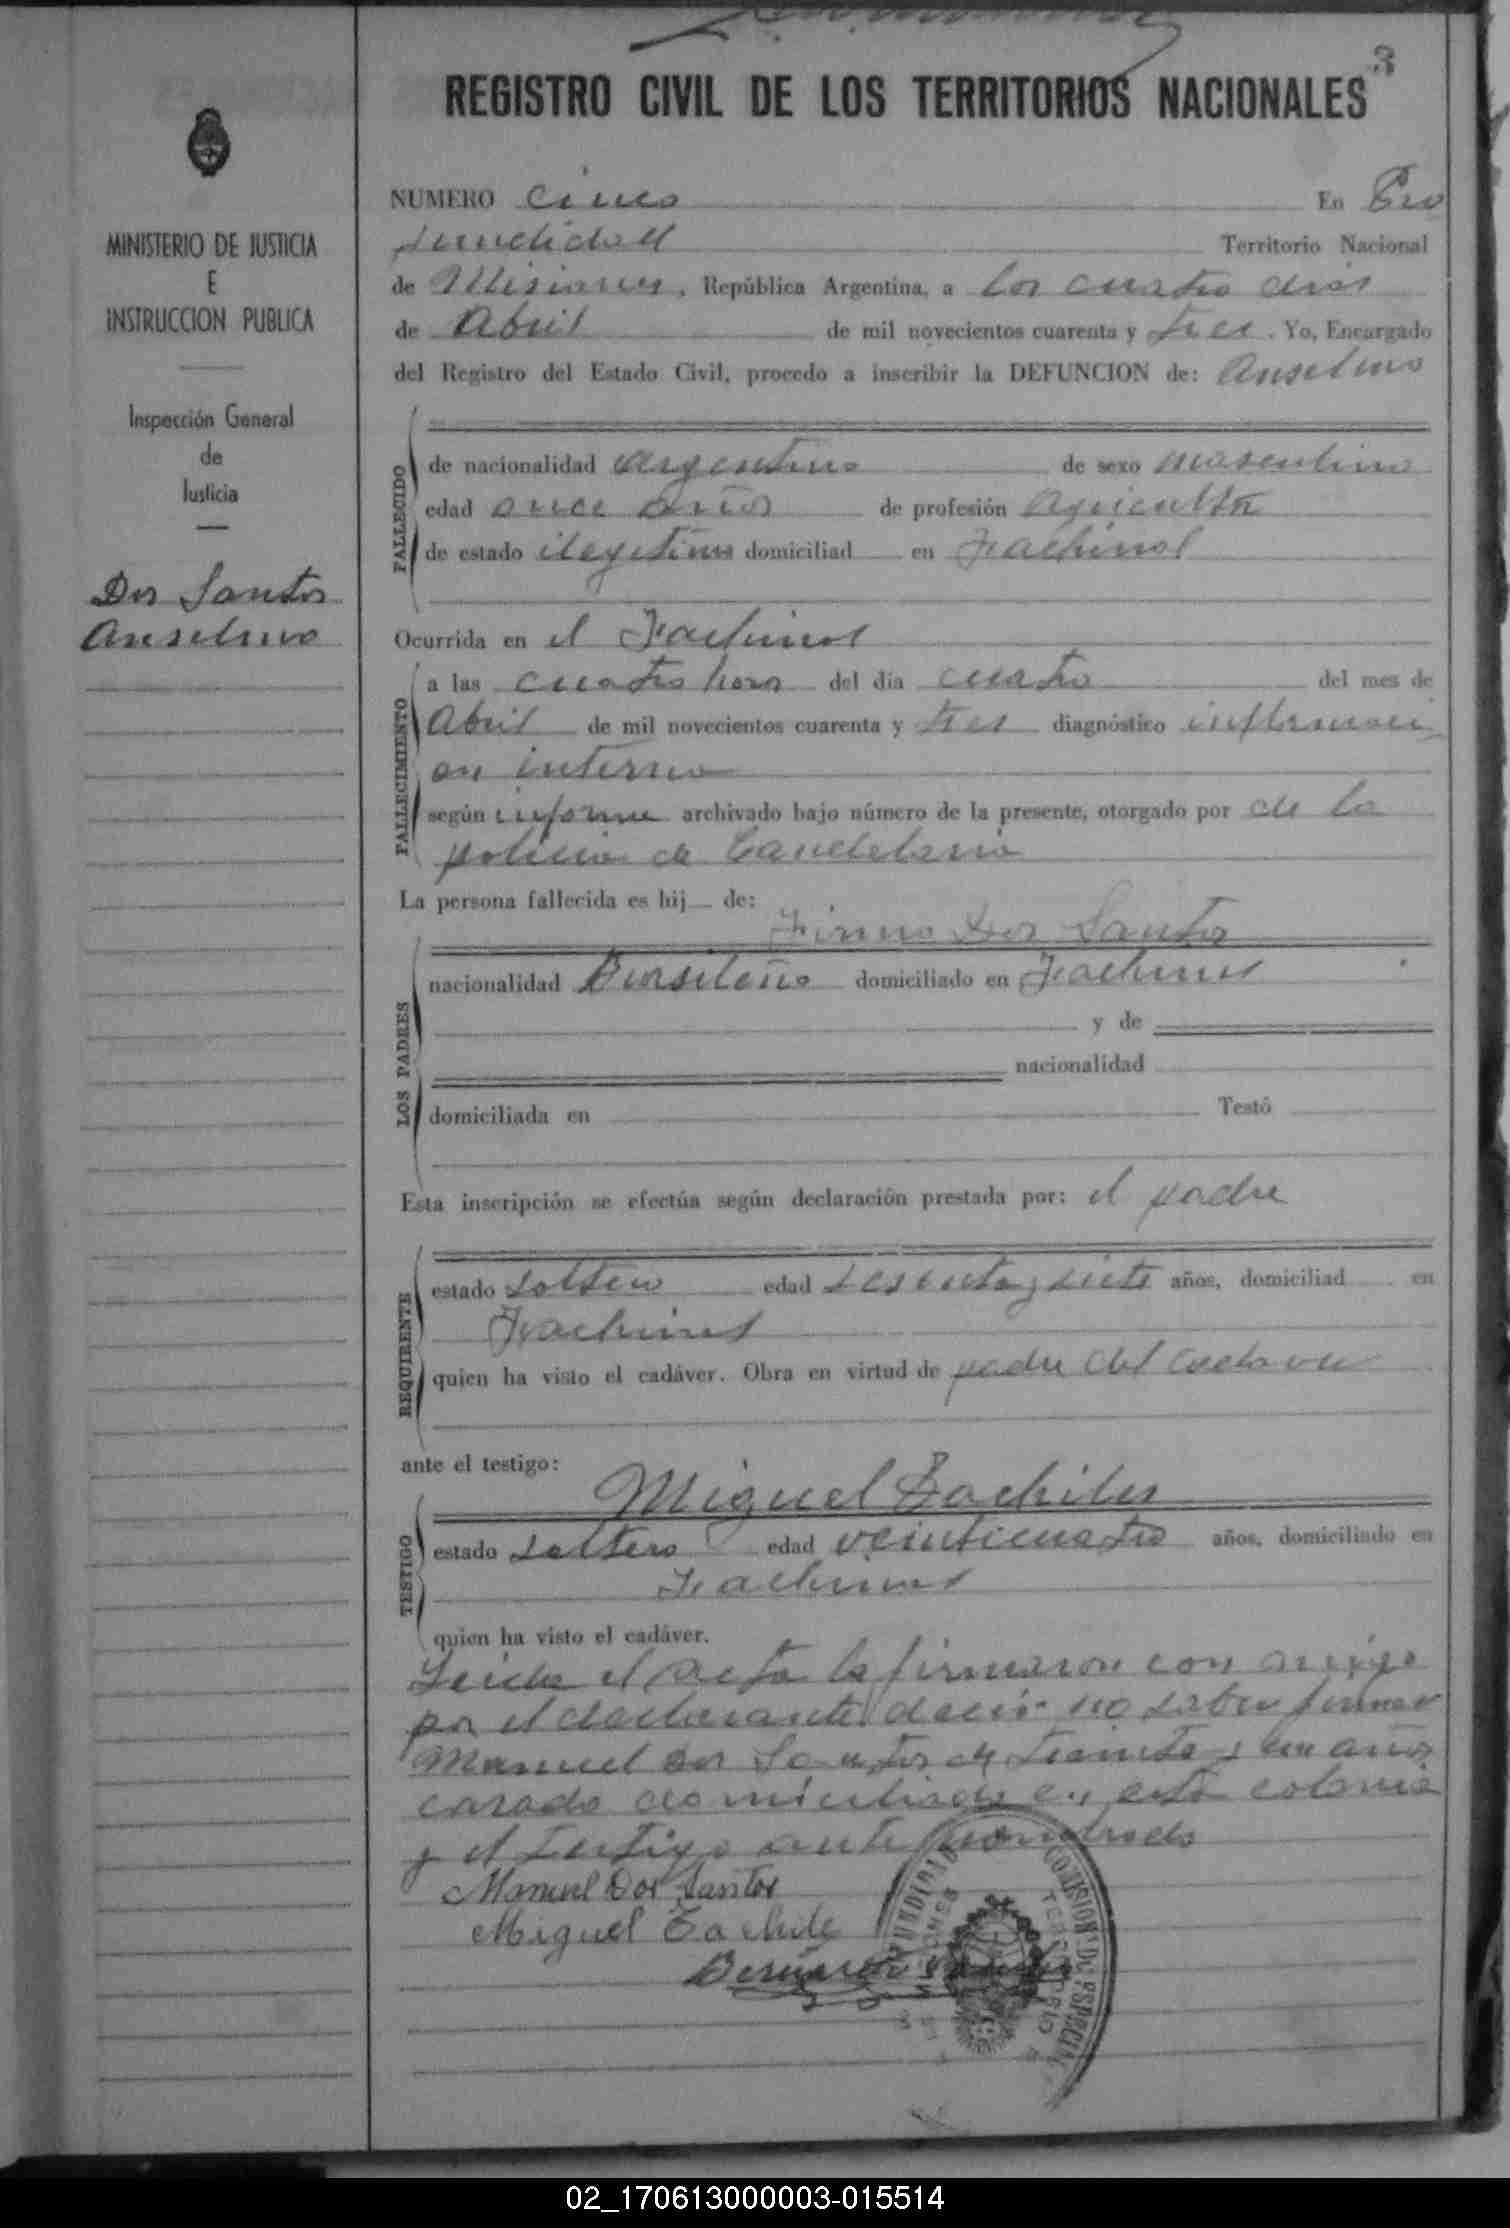 3
REGISTRO CIVIL DE LOS TERRITORIOS NACIONALES
MINISTERIO DE JUSTICIA
E
INSTRUCCION PUBLICA
Inspección General
de
Justicia
Dos Santos
Anselmo
NUMERO cinco En Pro
fundidad Territorio Nacional
de Misiones, República Argentina, a los cuatro dias
de Abril de mil novecientos cuarenta y tres. Yo, Encargado
del Registro del Estado Civil, procedo a inscribir la DEFUNCION de: Anselmo
FALLECIDO
de nacionalidad argentino de sexo masculino
edad once años de profesión Agricultor
de estado ilegitimo domiciliad en Fachinal
Ocurrida en el Fachinal
FALLECIMIENTO
a las cuatro horas del día cuatro del mes de
Abril de mil novecientos cuarenta y tres diagnóstico inflamaci
on interna
según informe archivado bajo número de la presente, otorgado por de la
policia de Candelaria
La persona fallecida es hij de:
Firmo Dos Santos
LOS PADRES
nacionalidad Brasileño domiciliado en Fachinal
y de
nacionalidad
domiciliada en Testó
Esta inscripción se efectúa según declaración prestada por: el padre
REQUIRENTE
estado soltero edad sesenta y siete años, domiciliad en
Fachinal
quien ha visto el cadáver. Obra en virtud de padre del cadaver
ante el testigo:
Miguel
TESTIGO
estado soltero edad veinticuatro años, domiciliado en
Fachinal
quien ha visto el cadáver.
Leida el acta la firmaron con migo
por el declarante decir no saber firmar
Manuel Dos Santos de treinta y un años
casado domiciliado en esta colonia
y el testigo ante nombrado
Manuel Dos Santos
Miguel
COMISION DE
MISIONES
02_170613000003-015514